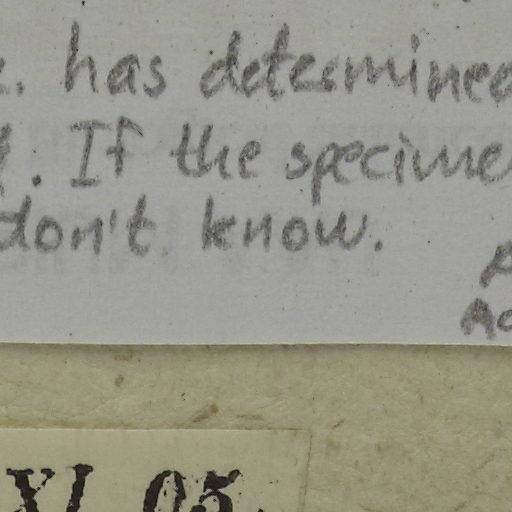 . has determined
. If the specimen
don't know.
XI. 05.